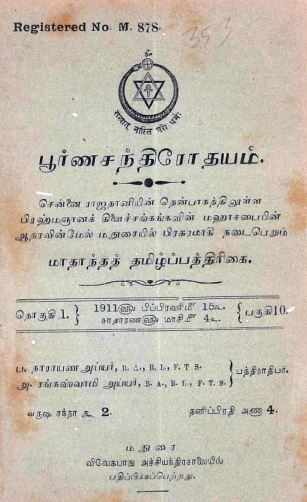 Registered No. M. 878.
353
सत्यात् नास्ति परो धर्मः
பூர்ணசந்திரோதயம்.
சென்னை ராஜதானியின் தென்பாகத்திலுள்ள
பிரஹ்மஞானக் கிளைச்சங்கங்களின் மஹாசபையின்
ஆதரவின்மேல் மதுரையில் பிரசுரமாகி நடைபெறும்
மாதாந்தத் தமிழ்ப்பத்திரிகை.
தொகுதி 1. } 1911ளு பிப்ரவரிமீ 15உ { பகுதி 10.
சாதாரணளு மாசிமீ 4உ
ப. நாராயண அய்யர், B. A., B. L., F. T. S. } பத்திராதிபர்.
அ. ரங்கஸ்வாமி அய்யர், B. A., B. L., F. T. S.
வருஷ சந்தா ரூ 2. தனிப்பிரதி அணா 4.
மதுரை
விவேகபாநு அச்சியந்திரசாலையில்
பதிப்பிக்கப்பெற்றது.